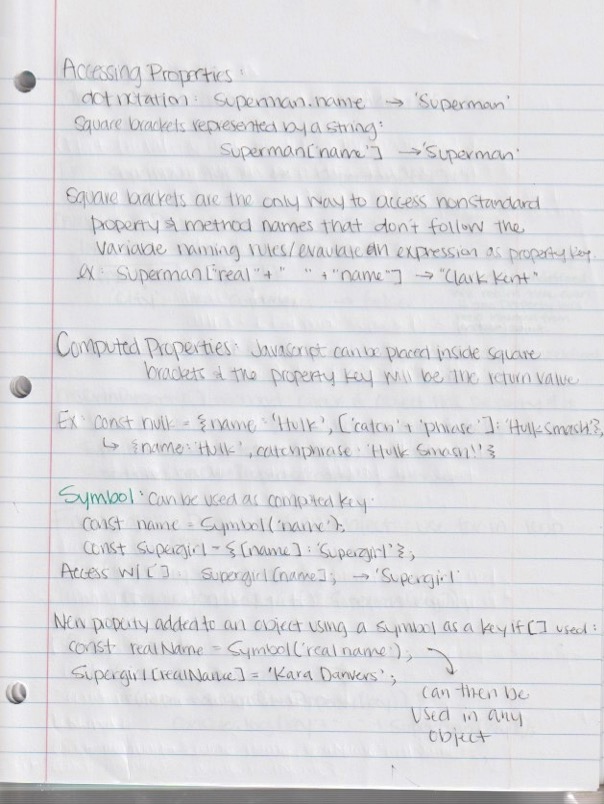 Accessing Properties:
dot notation: Superman.name → 'Superman'
Square brackets represented by a string:
Superman['name'] → 'Superman'
Square brackets are the only way to access nonstandard
property & method names that don't follow the
variable naming rules/evaluate an expression as property key.
ex: Superman["real"+" "+"name"] → "Clark Kent"
Computed Properties: Javascript can be placed inside square
brackets & the property key will be the return value
Ex: const hulk = {name: 'Hulk', ['catch' + 'phrase']: 'Hulk Smash'},
↳ {name: 'Hulk', catchphrase: 'Hulk Smash!'}
Symbol: can be used as computed key.
const name = Symbol('name');
const supergirl = {[name]: 'Supergirl'};
Access w/[]: supergirl[name]; → 'Supergirl'
New property added to an object using a symbol as a key if [] used:
const realName = Symbol('real name');
Supergirl[realName] = 'Kara Danvers';
can then be
used in any
object